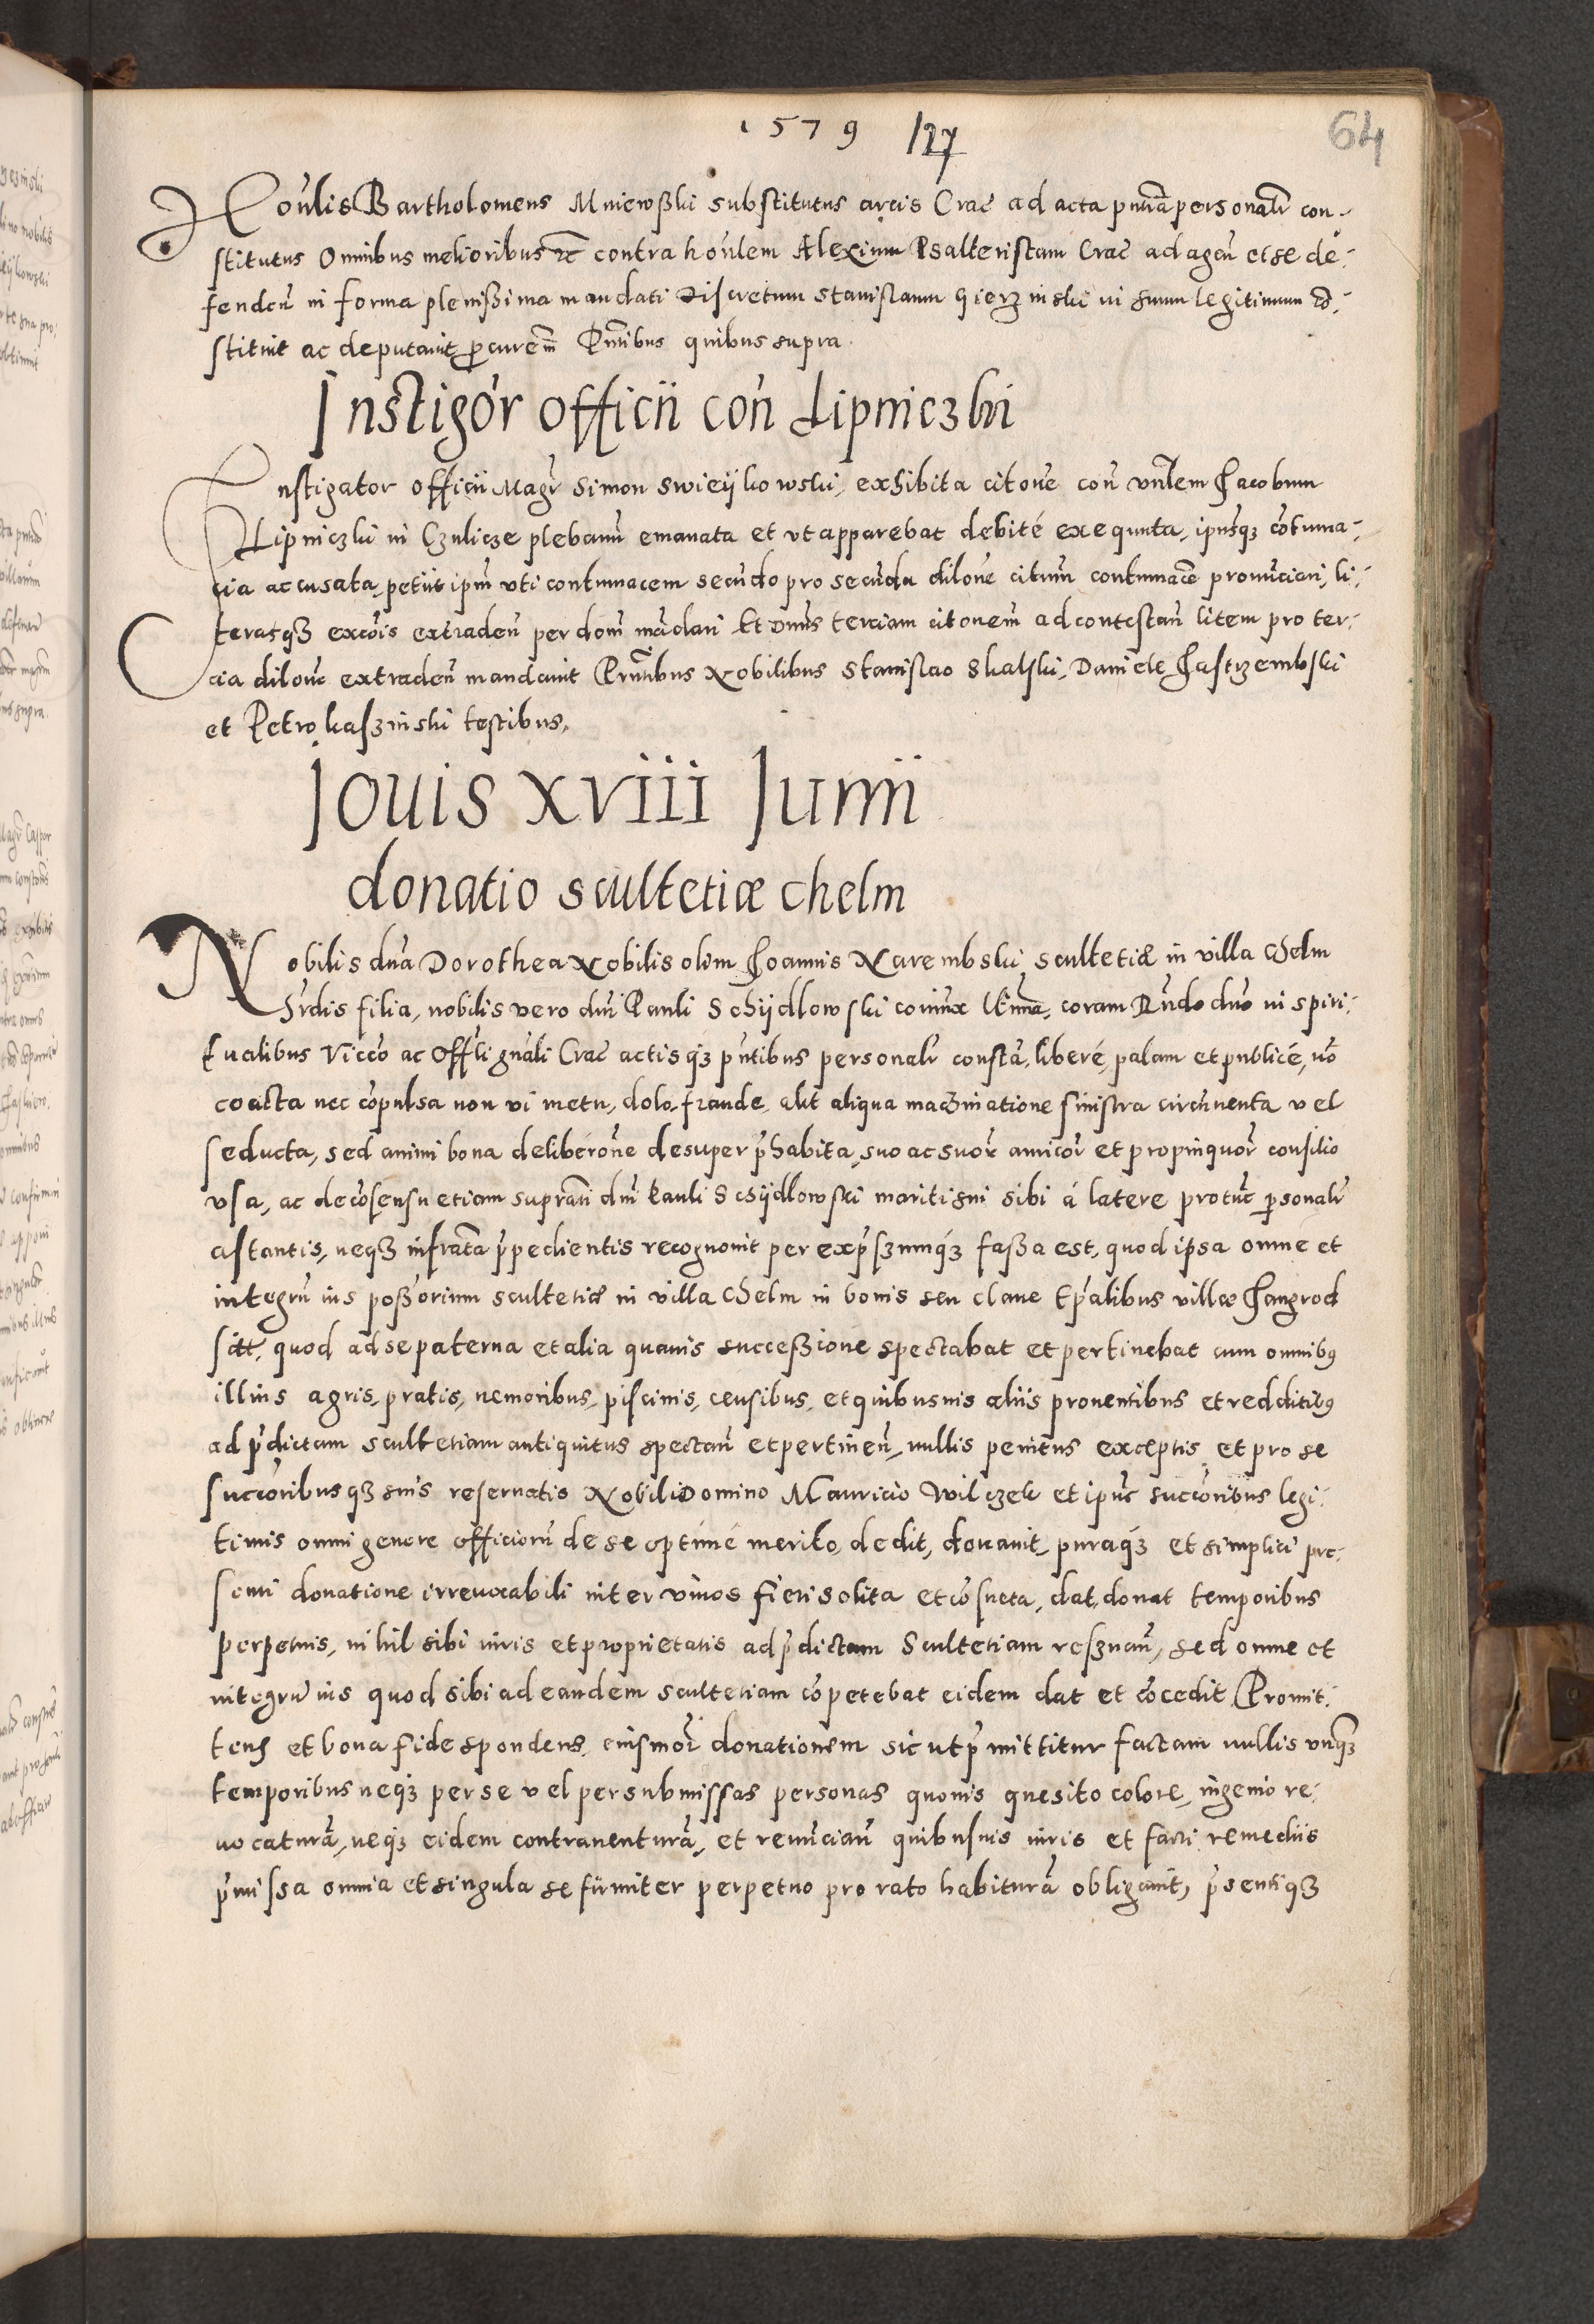 1579 127 64
Honlis Bartholomeus Mniewßki substitutus arcis Crac ad acta pntia personalr con-
stitutus Omnibus melioribus etc contra honlem Alexium Psalteristam Crac ad agen et se de-
fenden in forma plenißima mandati Discretum Stanislaum Gierzinski in suum legitimum co-
stituit ac deputauit procurem Pntibus quibus supra.
Instigor officii con Lipniczki
Instigator officii Magr Simon Swieykowski, exhibita citone con vnlem Jacobum
Lipniczki in Czulicze plebanum emanata et vt apparebat debité exequuta, ipiusqz cotuma-
cia accusata, petiit ipm vti contumacem secundo pro secunda dilone citum contumace pronunciari, li-
terasqz excois extraden per dom mandari Et Dnus terciam citonem ad contestan litem pro ter-
cia dilone extraden mandauit Pntibus Nobilibus Stanislao Skalski, Daniele Jastrzembski
et Petro kaszinski testibus.
Jouis XVIII Junii
donatio scultetiæ Chelm
Nobilis dna Dorothea Nobilis olim Joannis Narembski scultetiæ in villa Chelm
hrdis filia, nobilis vero dni Pauli Schijdlowski coniunx ltima, coram Rndo dno in spiri-
tualibus Vicco ac Offli gnali Crac actisqz pntibus personalr constta, liberé, palam et publicé, no
coacta nec compulsa non vi metu, dolo, fraude, alit aliqua machinatione sinistra circumuenta vel
seducta, sed animi bona deliberone desuper prhabita, suo ac suor amicor et propinquor consilio
vsa, ac de cosensu etiam supranti dni Pauli Schijdlowski mariti sui sibi á latere protunc personalr
astantis, neqz infrata prpedientis recognouit per exprszumqz faßa est, quod ipsa omne et
integru ius poßorium scultetiæ in villa Chelm in bonis seu claue Epralibus villæ Jangrod
sitt, quod ad se paterna et alia quauis succeßione spectabat et pertinebat cum omnibus
illius agris, pratis, nemoribus, piscinis, censibus, et quibusuis aliis prouentibus et redditibus
ad prdictam scultetiam antiquitus spectan et pertinen, nullis penitus exceptis et pro se
succoribusqz suis reseruatis Nobili Domino Mauricio Wilczek et ipius succoribus legi-
timis omni genere officioru de se optimé merito, dedit, donauit, puraqz et simplici pre-
senti donatione irreuocabili inter viuos fieri solita et cosueta, dat, donat temporibus
perpetuis, nihil sibi iuris et proprietatis ad prdictam Scultetiam reszuan, sed omne et
integru ius quod sibi ad eandem scultetiam copetebat eidem dat et cocedit, Promit-
tens et bona fide spondens eiusmoi donationem sic ut prmittitur factam nullis vnqz
temporibus neqz per se vel per submissas personas quouis quesito colore, ingenio re-
uocatura, neqz eidem contrauentura, et renuncian quibusuis iuris et facti remediis
prmissa omnia et singula se firmiter perpetuo pro rato habitura obligauit, prsentiqz